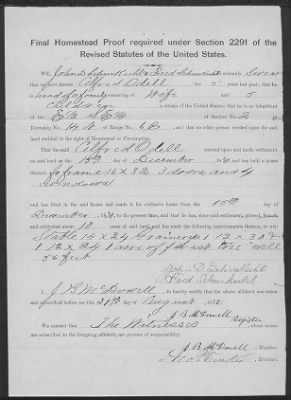 Final Homestead Proof required under Section 2291 of the
Revised Statutes of the United States.
We, John D. & Ford do solemnly Swear
that we have known Alfred Odell for 5 years last past; that he
is head of a family consisting of Wife and 5
children a citizen of the United States; that he is an inhabitant
of the E½ SE¼ of Section No. 2 in
Township No. 14 N, of Range No. 6 E, and that no other person resided upon the said land entitled
to the right of Homestead or Pre-emption.
That the said Alfred Odell entered upon and made settlement
on said land on the 15th day of December, 18 and has built a house
thereon a frame 16 x 32 3 doors and 4
windows
and has lived in the said house and made it his exclusive home from the 15th day of
December, 18 to the present time, and that he has, since said settlement, plowed,
and cultivated about 10 acres of said land, and has made the following improvements thereon, to wit:
Stable 14 x 24 1 12 x 30 &
1 12 x 24 1 acre of forest tree well
56 feet
John D.
Ford
I, J B McDowell do hereby certify that the above affidavit was taken and
subscribed before me this day of August, 18
Register
We certify that The Witnesses whose names
are subscribed to the foregoing affidavit, are persons of respectability.
J B McDowell, Register.
, Receiver.